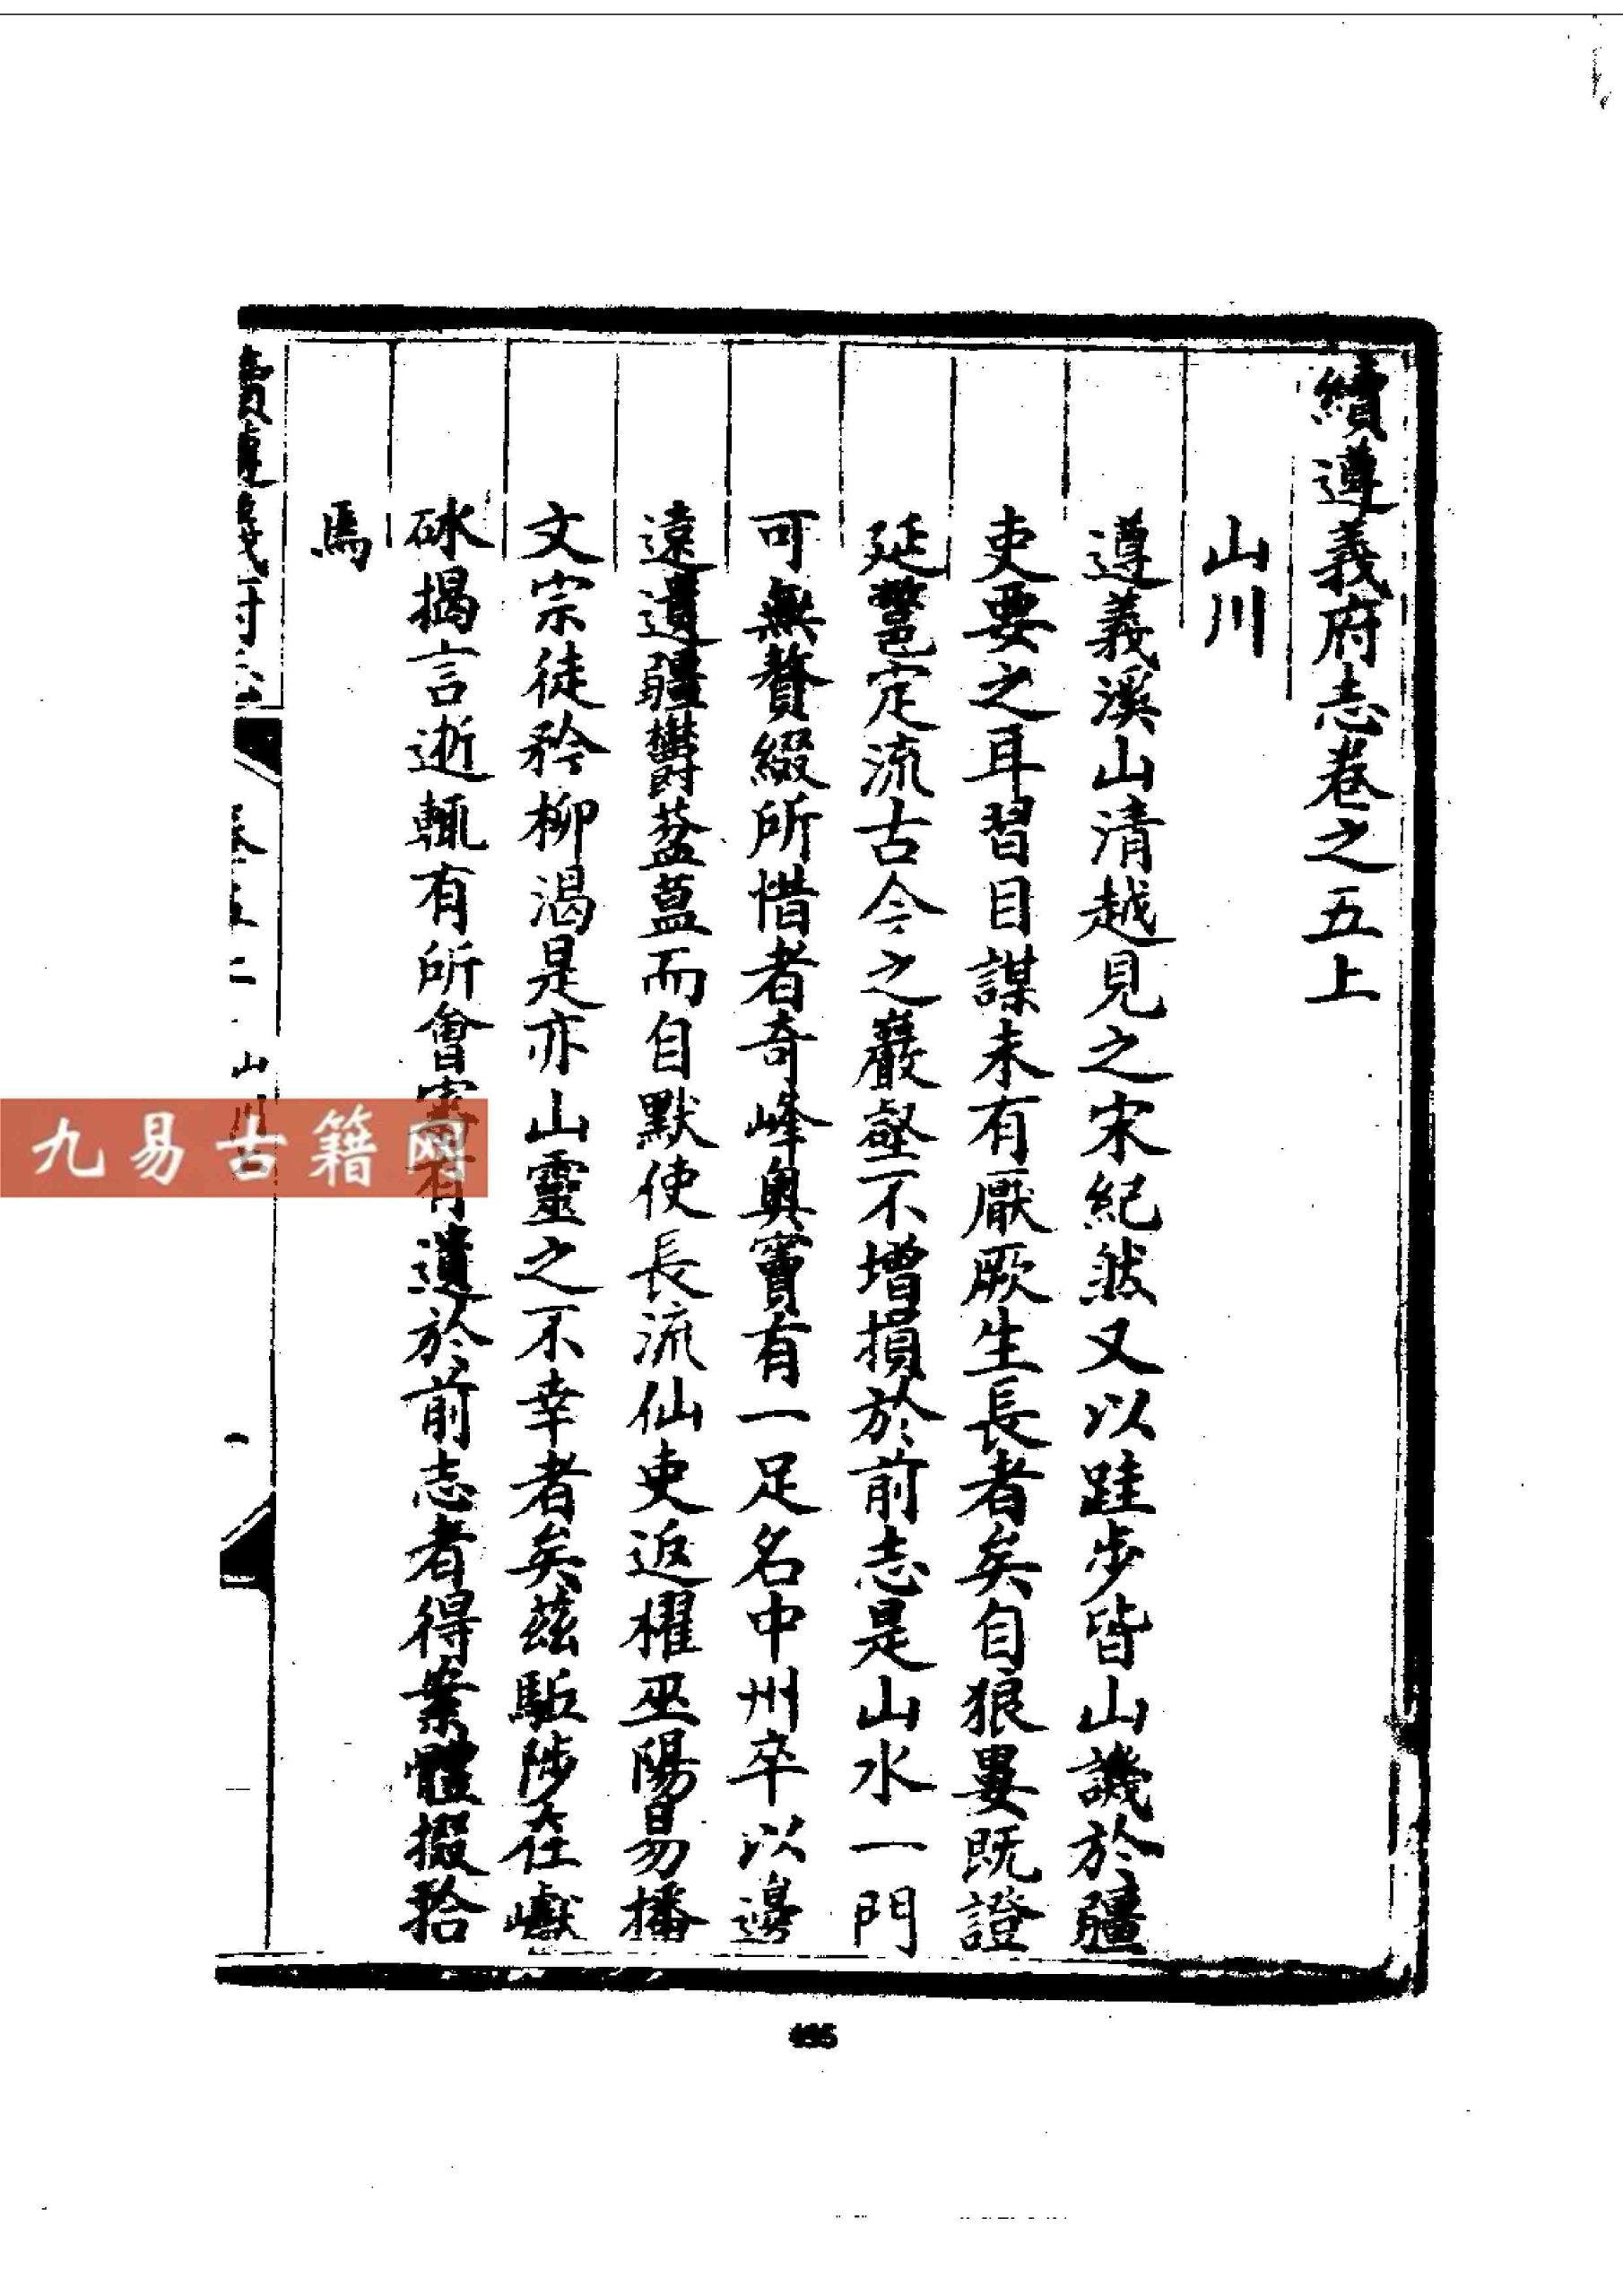 續遵義府志卷之五上
山川
遵義溪山清越見之宋紀然又以跬步皆山譏於疆
吏要之耳習目謀未有厭厥生長者矣自狼婁既證
延鼈定流古今之巖壑不增損於前志是山水一門
可無贅綴所惜者奇峰奥竇有一足名中州卒以邊
遠遺疆鬱葢藞而自默使長流仙吏返櫂巫陽易播
文宗徒矜柳渴是亦山靈之不幸者矣茲駈陟在巘
砯揭言逝輒有所會寓有遺於前志者得業體掇拾
焉
續遵義府志
卷五上
山川
一
九易古籍网
495